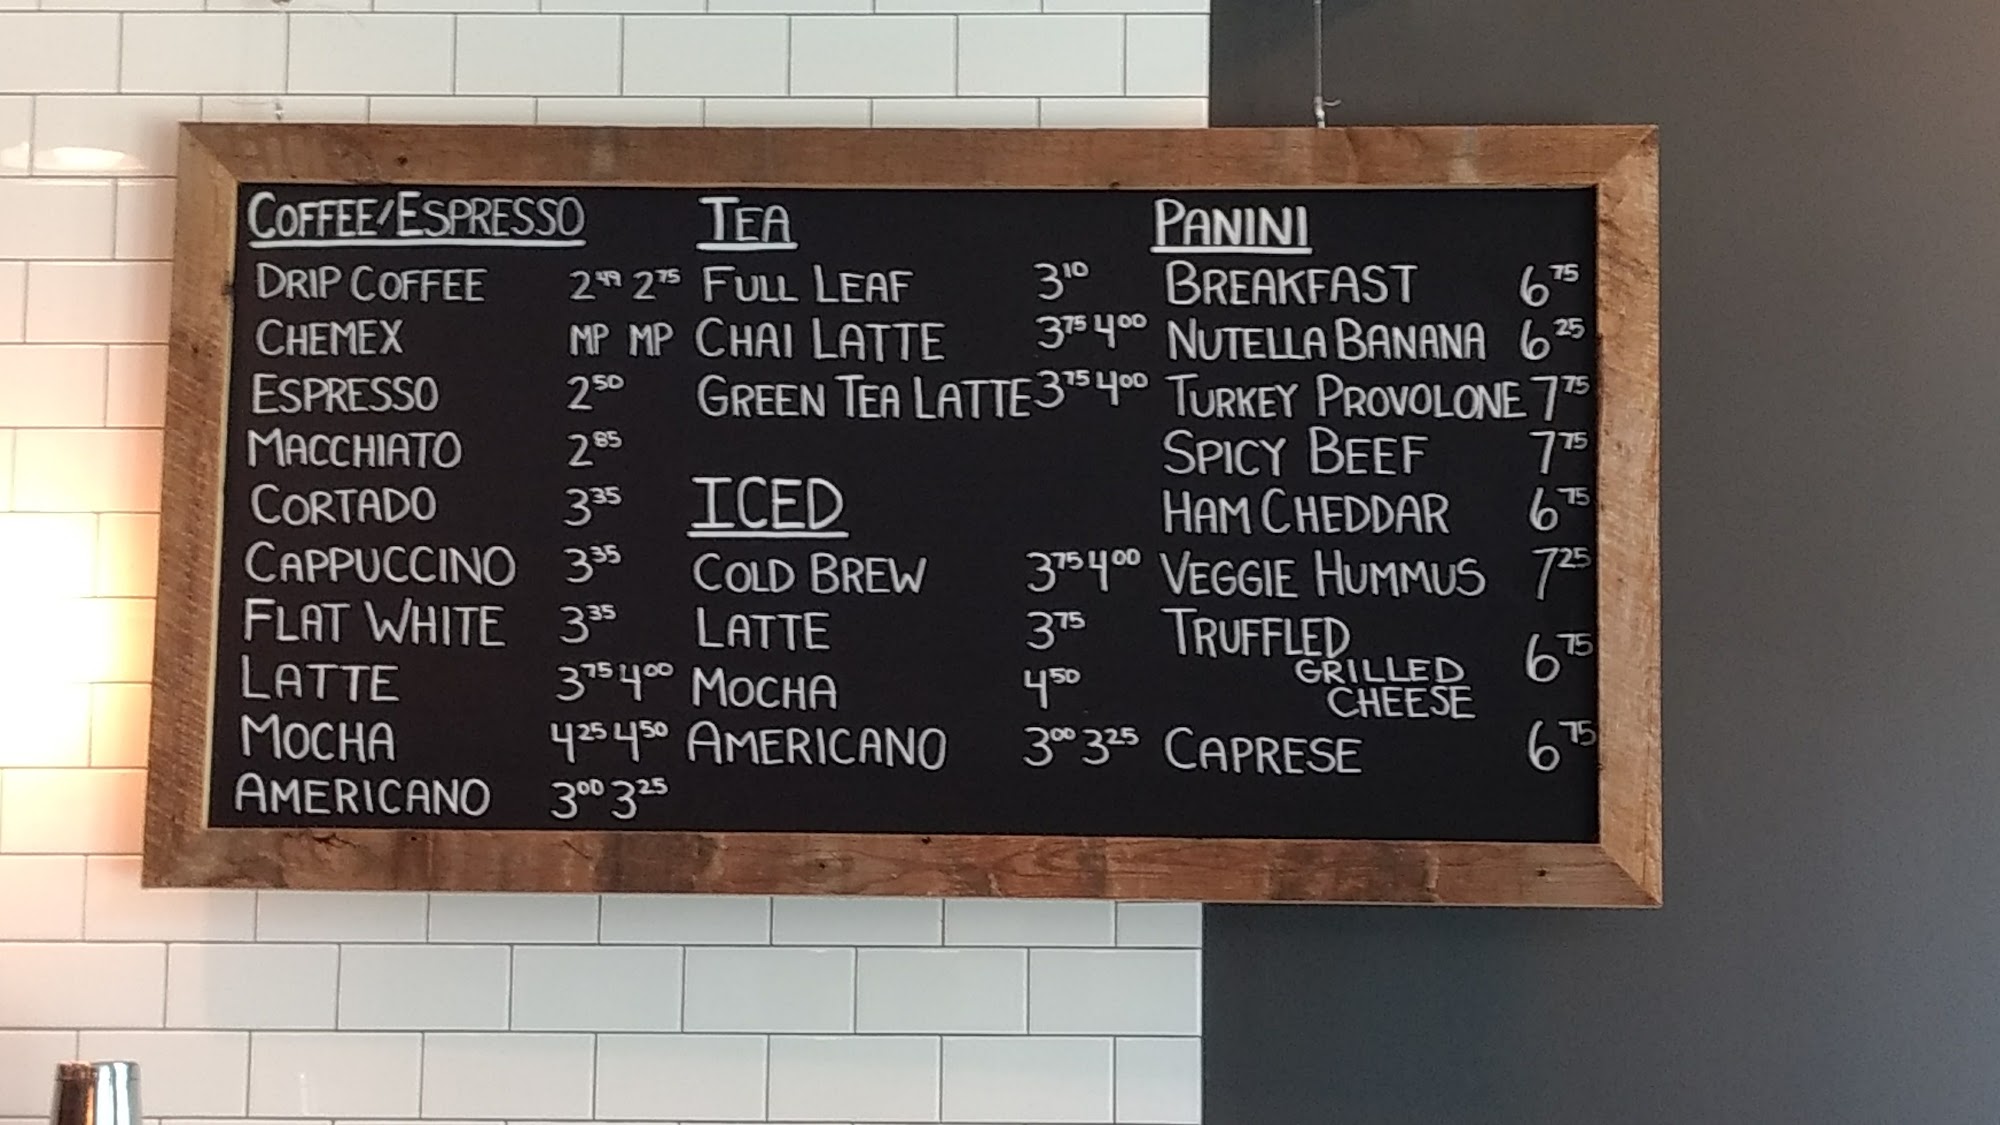 COFFEE/ESPRESSO
DRIP COFFEE 2.49 2.75
CHEMEX MP MP
ESPRESSO 2.50
MACCHIATO 2.85
CORTADO 3.35
CAPPUCCINO 3.35
FLAT WHITE 3.35
LATTE 3.75 4.00
MOCHA 4.25 4.50
AMERICANO 3.00 3.25
TEA
FULL LEAF 3.10
CHAI LATTE 3.75 4.00
GREEN TEA LATTE 3.75 4.00
ICED
COLD BREW 3.75 4.00
LATTE 3.75
MOCHA 4.50
AMERICANO 3.00 3.25
PANINI
BREAKFAST 6.75
NUTELLA BANANA 6.25
TURKEY PROVOLONE 7.75
SPICY BEEF 7.75
HAM CHEDDAR 6.75
VEGGIE HUMMUS 7.25
TRUFFLED
GRILLED 6.75
CHEESE
CAPRESE 6.75